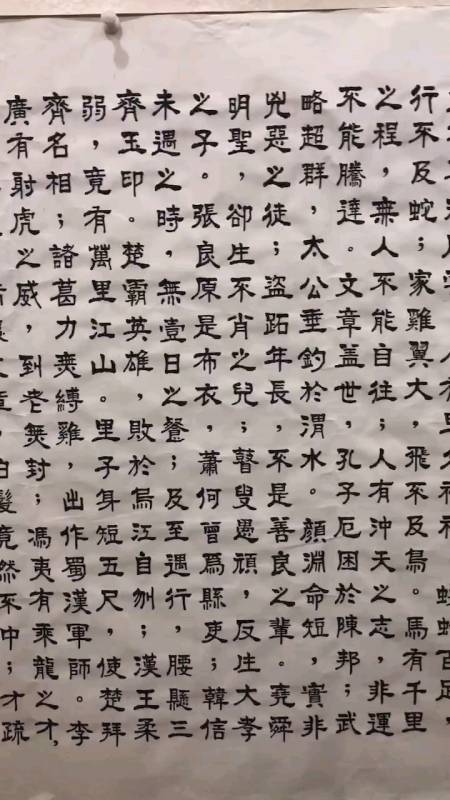 人有旦夕禍福。蜈蚣百足，
行不及蛇；家雞翼大，飛不及鳥。馬有千里
之程，無人不能自往；人有沖天之志，非運
不能騰達。文章蓋世，孔子厄困於陳邦；武
略超群，太公垂釣於渭水。顏淵命短，實非
兇惡之徒；盜跖年長，不是善良之輩。堯舜
明聖，卻生不肖之兒；瞽叟愚頑，反生大孝
之子。張良原是布衣，蕭何曾為縣吏；韓信
未遇之時，無壹日之餐；及至遇行，腰懸三
齊玉印。楚霸英雄，敗於烏江自刎；漢王柔
弱，竟有萬里江山。里子身短五尺，使楚拜
齊名相；諸葛力無縛雞，出作蜀漢軍師。李
廣有射虎之威，到老無封；馮夷有乘龍之才，
髮竟然不中；才疏